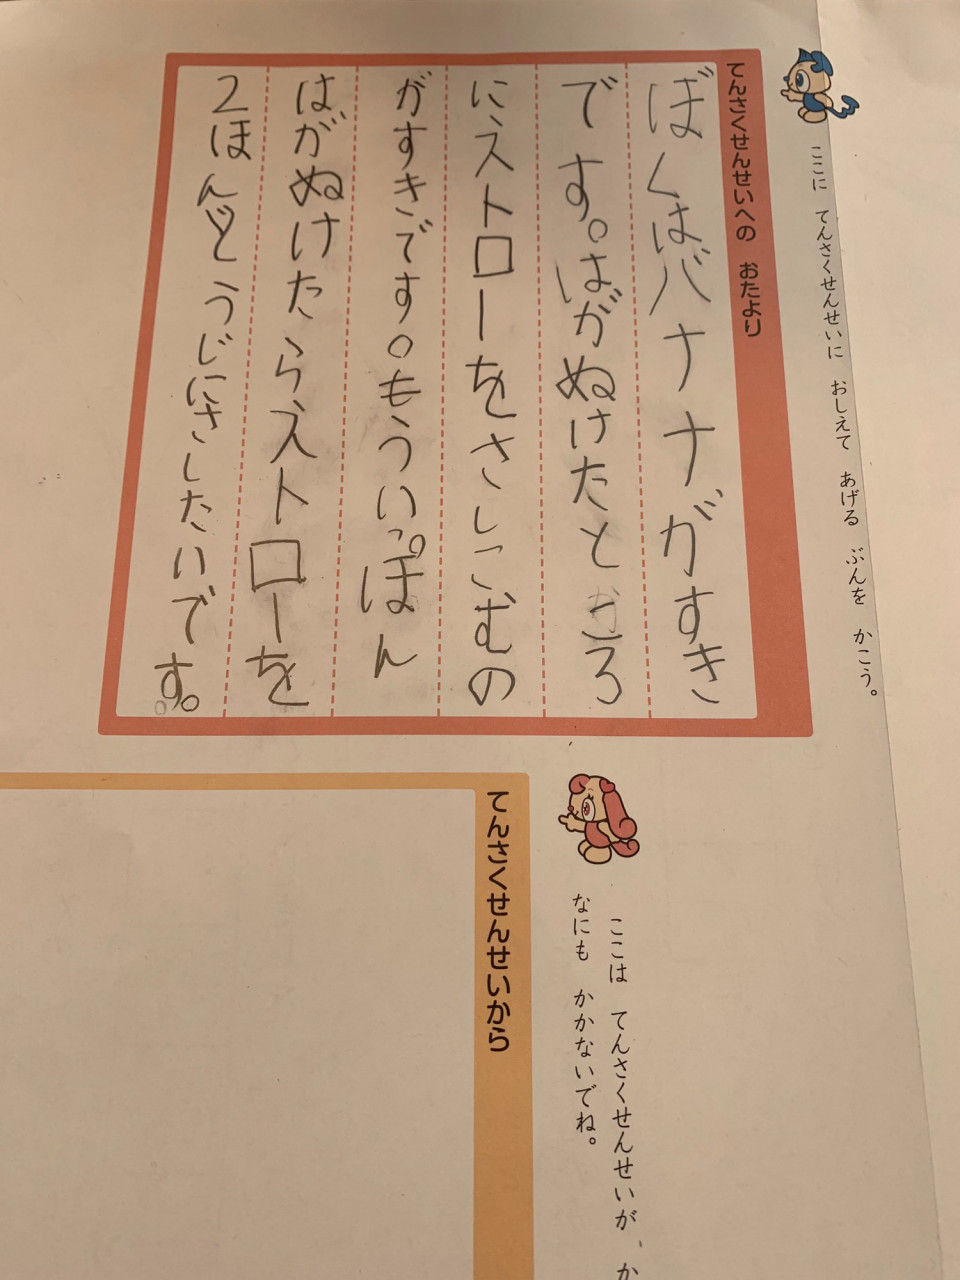 ここに てんさくせんせいに おしえて あげる ぶんを かこう。
てんさくせんせいへの おたより
ぼくはバナナがすき
です。はがぬけたところ
にストローをさしこむの
がすきです。もういっぽん
はがぬけたらストローを
2ほんどうじにさしたいです。
ここは てんさくせんせいが、か
なにも かかないでね。
てんさくせんせいから